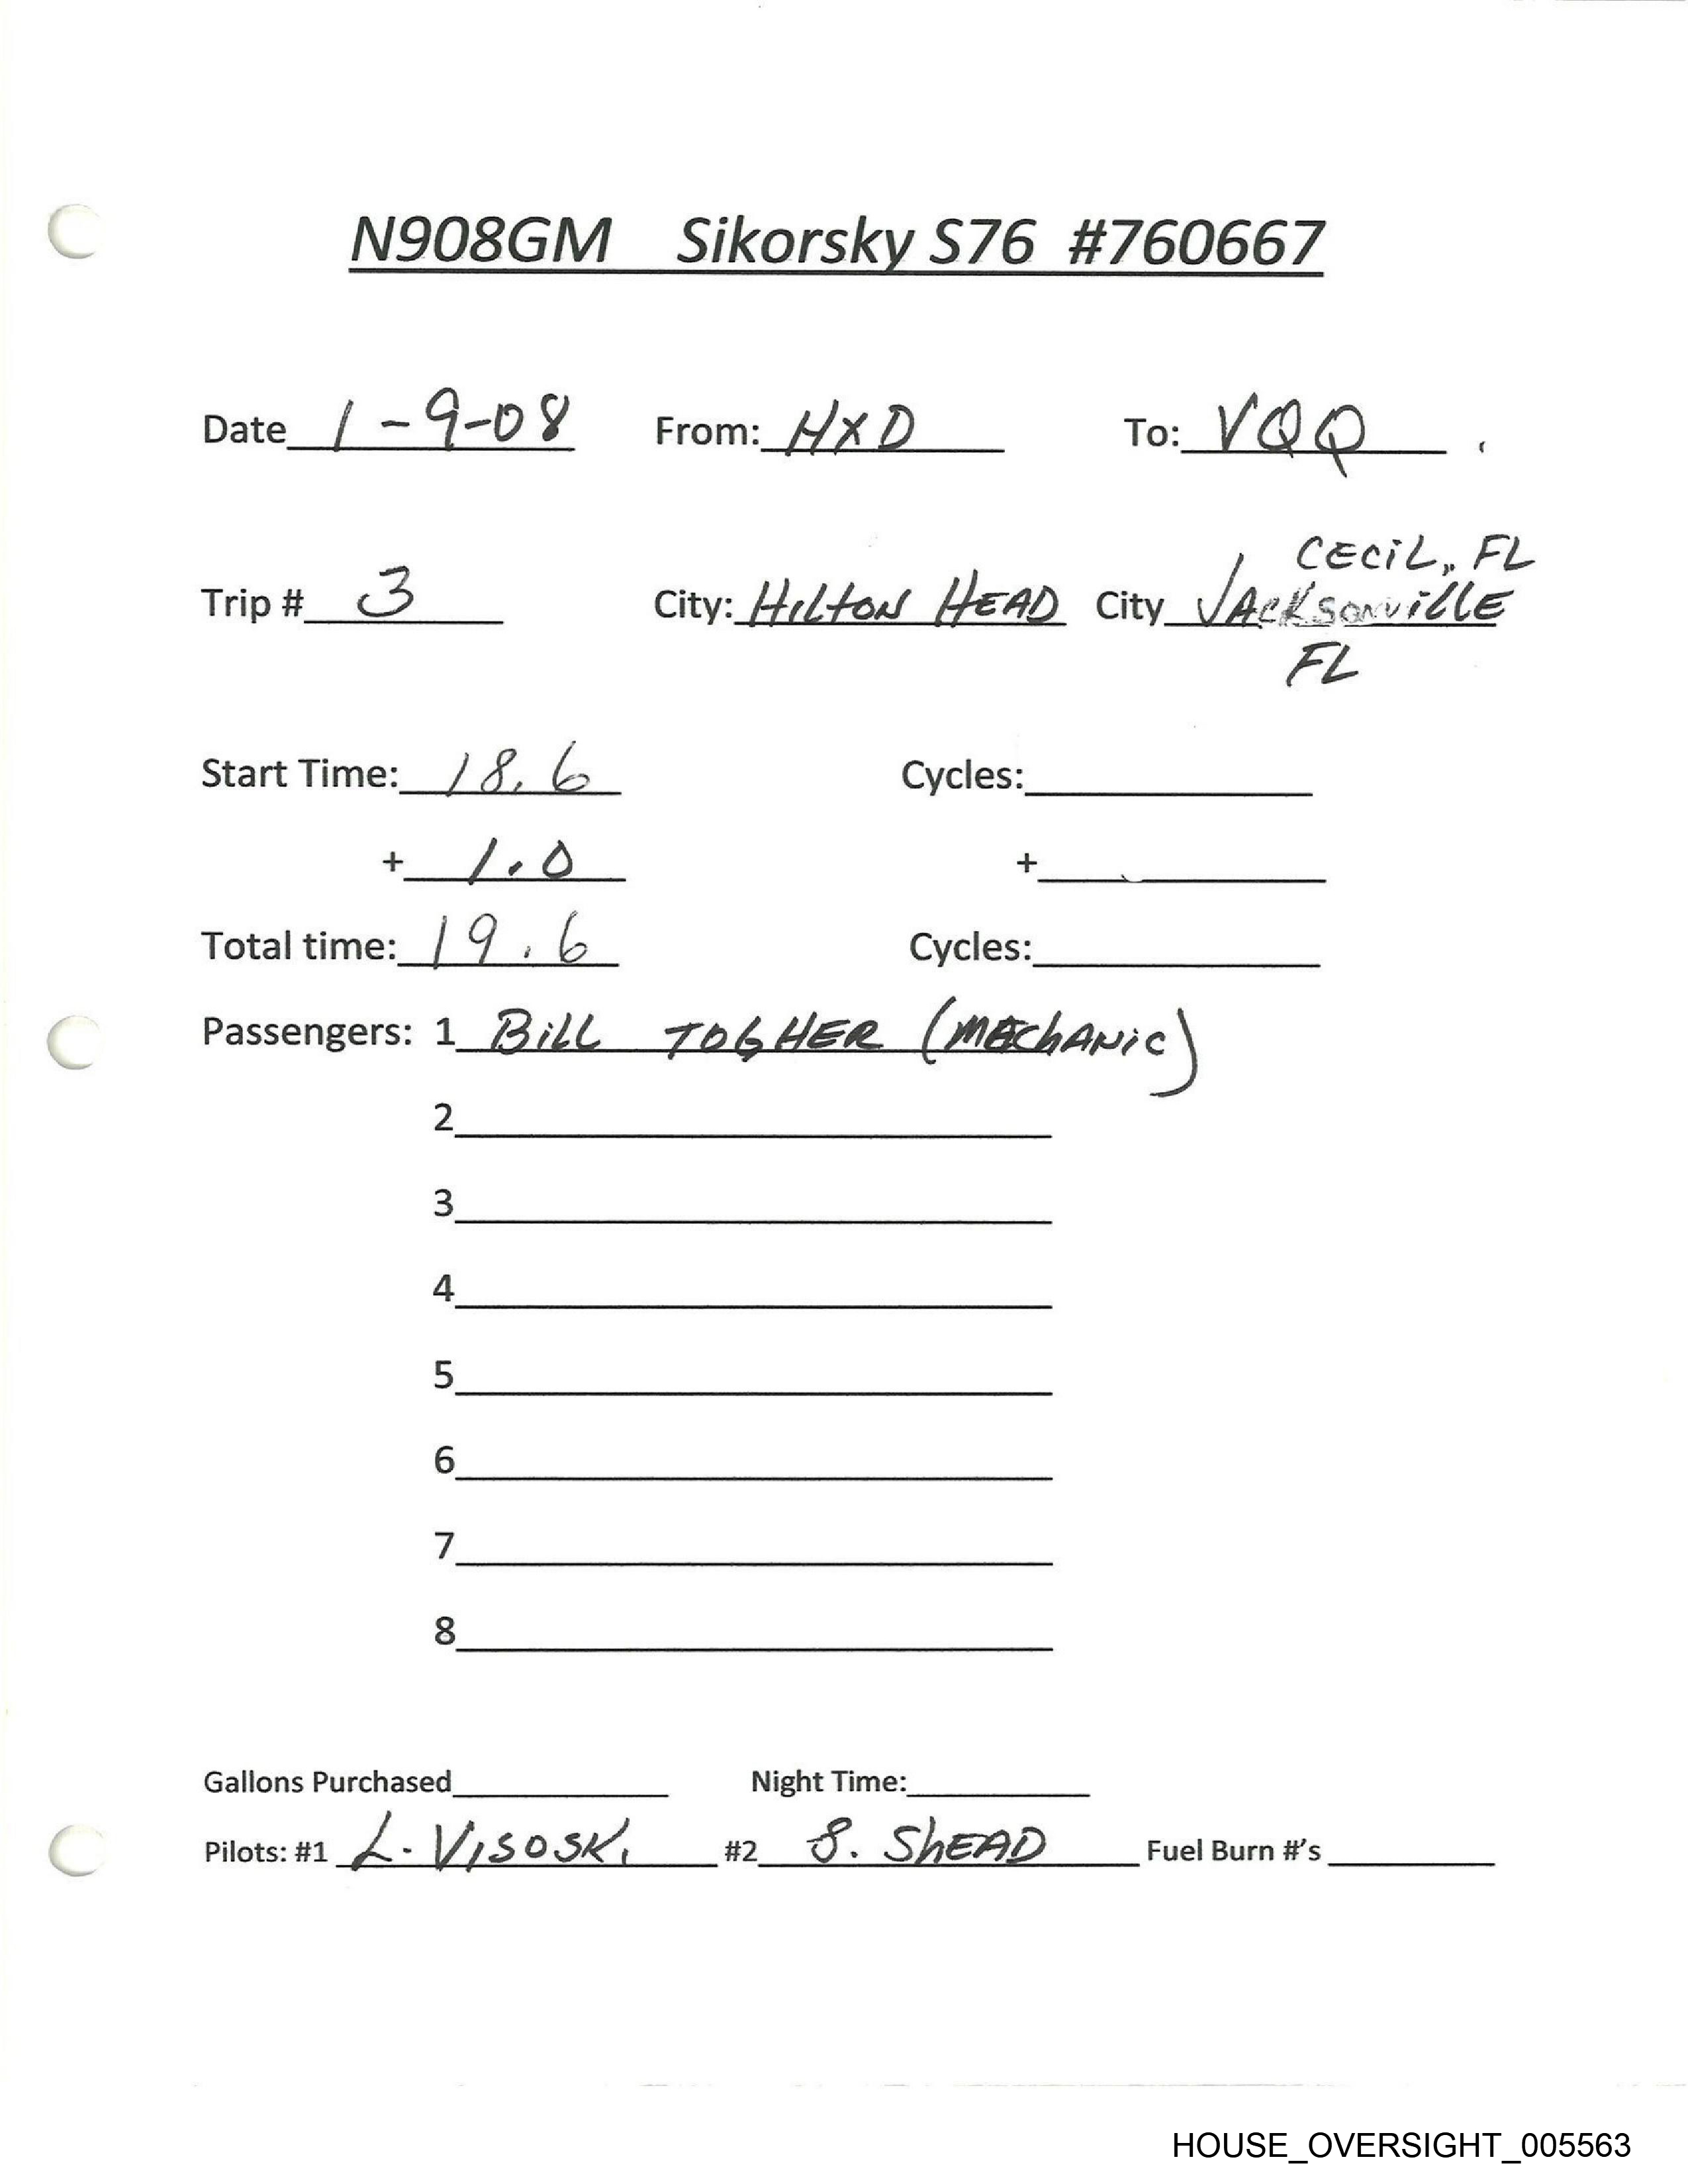 N908GM Sikorsky S76 #760667
Date 1-9-08 From: HXD To: VQQ
CECiL, FL
Trip # 3 City: HiLTON HEAD City JACKSonviLLE
FL
Start Time: 18.6 Cycles:
+ 1.0 +
Total time: 19.6 Cycles:
Passengers: 1 BiLL TOGHER (MEChANiC)
2
3
4
5
6
7
8
Gallons Purchased Night Time:
Pilots: #1 L. VISOSKi #2 S. ShEAD Fuel Burn #'s
HOUSE_OVERSIGHT_005563